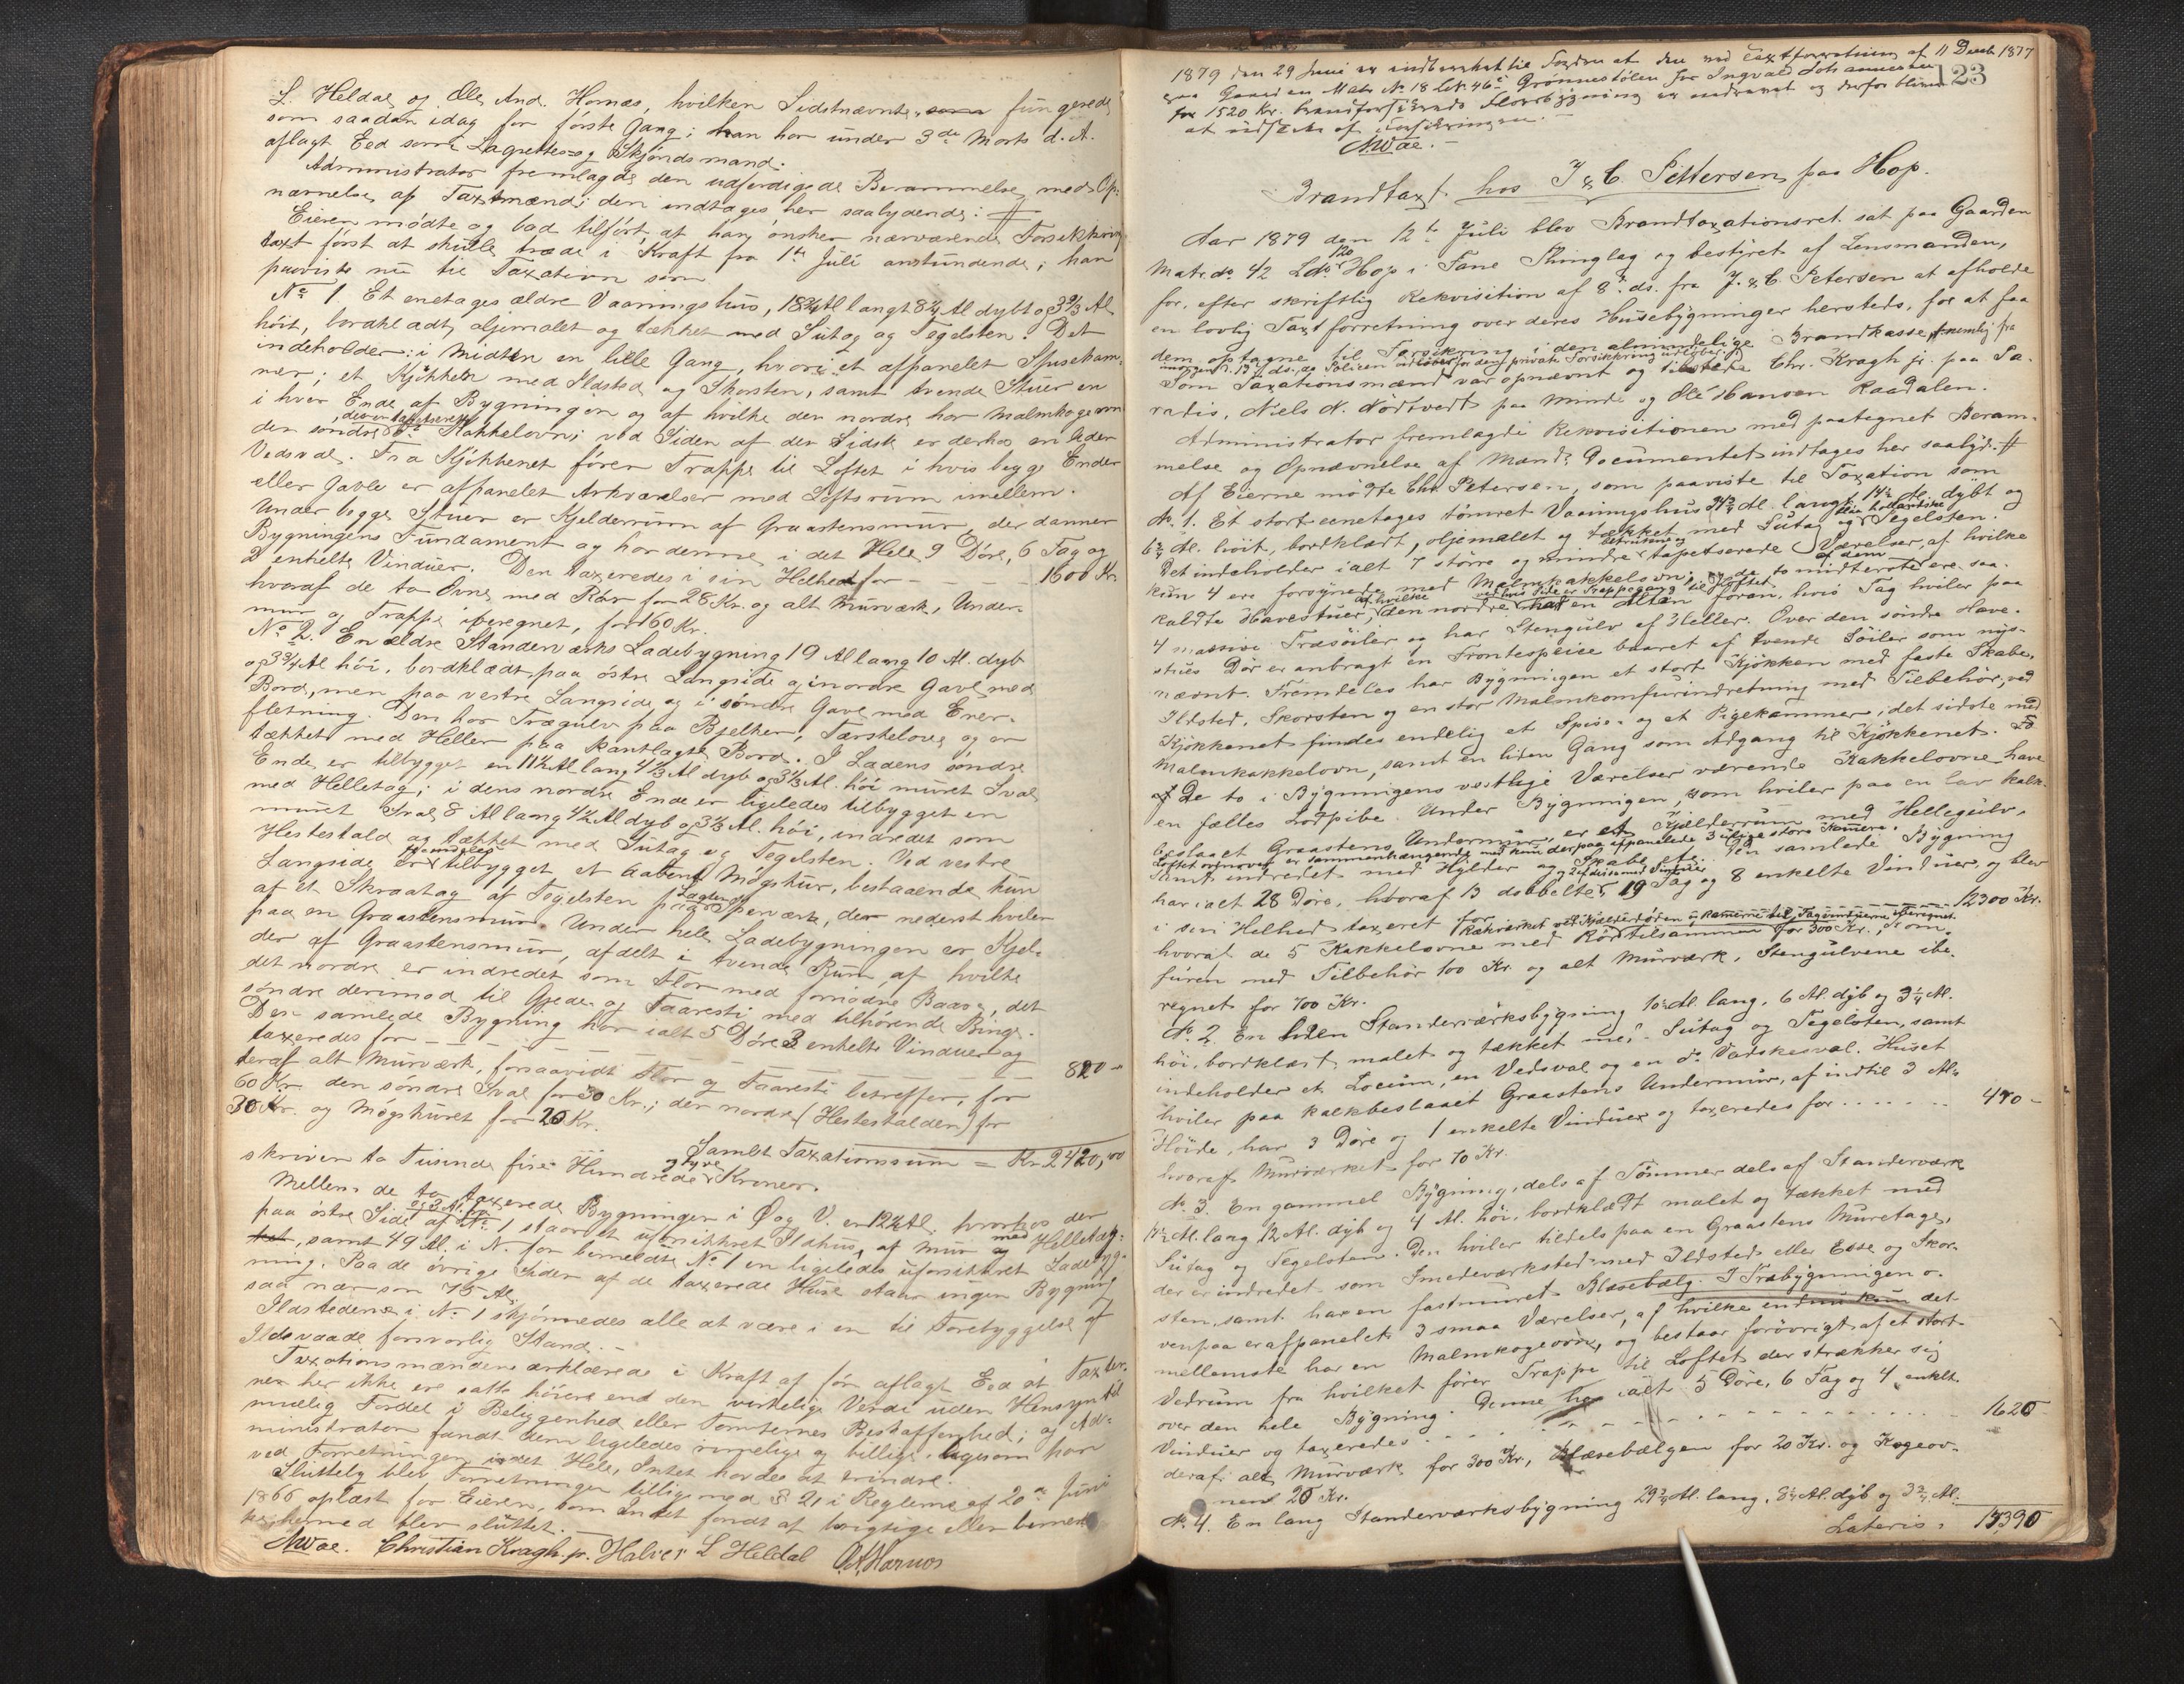 L. Heldal og Ole And. Hornæs, hvilken Sidstnævnte, som fungerede
som saadan idag for første Gang; han har under 3de Marts d. A.
aflagt Eed som Lagrettes- og Skjøndsmand.
Administrator fremlagde den udfærdigede Berammelse med Op-
nævnelse af Taxtmænd; den indtages her saalydende: #
Eieren mødte og bad tilført at han ønsker nærværende Forsikrings
taxt først at skulle træde i Kraft fra 1te Juli anstundende; han
paaviste nu til Taxation som
No 1. Et enetages ældre Vaaningshus, 18 3/4 Al langt 8 1/4 Al dybt og 3 2/3 Al
høit, bordklædt, oljemalet og tækket med Sutag og Tegelsten. Det
indeholder: i Midten en lille Gang, hvori et afpanelet Spisekam-
mer; et Kjøkken med Ildsted og Skorsten, samt tvende Stuer en
i hver Ende af Bygningen og af hvilke den nordre har Malmkogeovn
den søndre, der er tapetseret do Kakkelovn; ved Siden af den Sidste er derhos en liden
Vedsval. Fra Kjøkkenet fører Trappe til Loftet i hvis begge Ender
eller Gavle er afpanelet Arkværelser med Loftsrum imellem.
Under begge Stuer er Kjelderrum af Graastensmur, der danner
Bygningens Fundament og har denne i det Hele 9 Døre, 6 Fag og
2 enkelte Vinduer. Den taxeredes i sin Helhed for - - - - 1600 Kr.
hvoraf de to Ovne med Rør for 28 Kr. og alt Murværk, Under-
mur og Trappe iberegnet, for 160 Kr.
No 2. En ældre Standerværks Ladebygning 19 Al lang 10 Al. dyb
og 3 3/4 Al høi, bordklædt paa østre Langside og i nordre Gavl med
Bord, men paa vestre Langside og i søndre Gavl med Ener-
fletning. Den har Trægulv paa Bjelker, Tærskelove og er
tækket med Heller paa kantlagte Bord. I Ladens søndre
Ende er tilbygget en 11 1/2 Al lang 4 1/3 Al dyb og 3 1/3 Al. høi muret Sval
med Helletag; i dens nordre Ende er ligeledes tilbygget en
muret Sval 8 Al lang 4 1/2 Al dyb og 3 1/3 Al. høi, indredet som
Hestestald og tækket med Sutag og Tegelsten. Ved vestre
Langside er tilbygget et aabent Møgskur, bestaaende kun
af et Skraatag af Tegelsten paa Sperværk, der nederst hviler
paa en Graastensmur. Under hele Ladebygningen er Kjel-
der af Graastensmur, afdelt i tvende Rum, af hvilke
det nordre er indredet som Flor med fornødne Baase, det
søndre derimod til Gjede- og Faaresti med tilhørende Binge.
Den samlede Bygning har ialt 5 Døre 3 enkelte Vinduer og
taxeredes for - - - - - - - - - 820 -
deraf alt Murværk, forsaavidt Flor og Faaresti betreffer, for
60 Kr. den søndre Sval for 30 Kr.; den nordre (Hestestalden) for
30 Kr. og Møgskuret for 20 Kr.
Samlet Taxationssum = Kr. 2420,00
skriver to Tusinde fire Hundrede og tyve Kroner.
Mellem de to taxerede Bygninger i Ø og V. er 12 1/2 Al. hvorhos der
paa østre Side af No 1 staar et uforsikkret Ildhus, af Mur med Helletag-
samt 49 Al. i N. for bemeldte No 1 en ligeledes uforsikkret Ladebyg-
ning. Paa de øvrige Sider af de taxerede Huse staar ingen Bygning
saa nær som 75 Al.
Ildstederne i No 1 skjønnedes alle at være i en til Forebyggelse af
Ildsvaade forsvarlig Stand. -
Taxationsmændene erklærede i Kraft af før aflagt Eed at Taxter-
ne her ikke ere satte høiere end den virkelige Verdi uden Hensyn til
muelig Fordel i Beliggenhed eller Tomternes Beskaffenhed; og Ad-
ministrator fandt dem ligeledes rimelige og billige, ligesom han
ved Forretningen i det Hele, Intet havde at erindre.
Sluttelig blev Forretningen tillige med § 21 i Reglemt af 20de Juni
1866 oplæst for Eieren, som Intet fandt at berigtige eller bemær-
ke, hermed blev sluttet. -
AWae. Christian Kragh jr. Halver L Heldal O A Hornæs
1879 den 29 Juni er indberettet til Fogden at den ved Taxtforretning af 11 Decbr 1877
paa Gaarden Matr No 18 Lb.No 46c Grønnestølen for Ingvald Johannesen
for 1520 Kr. brandforsikrede Florbygning er nedrevet og derfor bliver
at udslette af Forsikringen. -
AWae. -
123
Brandtaxt hos J & C. Pettersen paa Hop.
Aar 1879 den 12te Juli blev Brandtaxationsret sat paa Gaarden
Matr. No 42 Lbo 120 Hop i Fane Thinglag og bestyret af Lensmanden,
for, efter skriftlig Rekvisition af 8de ds. fra J. & C. Petersen at afholde
en lovlig Taxtforretning over deres Husebygninger hersteds, for at faa
dem optagne til Forsikring i den almindelige Brandkasse, nemlig fra
imorgen d. 13de ds., da Policen for den private Forsikkring udløber.
Som Taxationsmænd var opnævnt og tilstede Chr. Kragh jr. paa Pa-
radis, Niels N. Nødtvedt paa Minde og Ole Hansen Raadalen.
Administrator fremlagde Rekvisitionen med paategnet Beram-
melse og Opnævnelse af Mænd; Documentet indtages her saalyd. #
Af Eierne mødte Chr. Petersen, som paaviste til Taxation som
No 1. Et stort enetages tømret Vaaningshus 34 3/4 Al. langt, 14 1/2 Al. dybt og
6 3/4 Al. høit, bordklædt, oljemalet og tækket med Sutag og blaa hollandske Tegelsten.
Det indeholder ialt 7 større og mindre betrukne og tapetserede Værelser, af hvilke
kun 4 ere forsynede med Malmkakkelovn; de to midterste af dem ere saa-
kaldte Havestuer, af hvilke den nordre, ved hvis Side er Trappegang til Loftet, har en Altan foran, hvis Tag hviler paa
4 massive Træsøiler og har Stengulv af Heller. Over den søndre Have-
stues Dør er anbragt en Frontespeise baaret af tvende Søiler som nys-
nævnt. Fremdeles har Bygningen et stort Kjøkken med faste Skabe,
Ildsted, Skorsten og en stor Malmkomfurindretning med Tilbehør; ved
Kjøkkenet findes endelig et Spise- og et Pigekammer, det sidste med
Malmkakkelovn, samt en liden Gang som Adgang til Kjøkkenet.
De to i Bygningens vestlige Værelser værende Kakkelovne have
en fælles Lodpibe. Under Bygningen, som hviler paa en lav kalk-
beslaaet Graastens Undermur, er et Kjelderrum med Hellegulv,
Loftet ovenover er sammenhængende med kun derpaa afpanelede 3 ulige store Kamere.
samt indredet med Hylder og Skabe etc. Den samlede Bygning
har ialt 28 Døre, hvoraf 13 dobbelte, 19 Fag og 8 enkelte Vinduer og blev
i sin Helhed taxeret for - - - - - - 12300 Kr.
hvoraf de 5 Kakkelovne med Rør tilsammen for 300 Kr., Kom-
furen med Tilbehør 100 Kr. og alt Murværk, Stengulvene ibe-
regnet for 700 Kr.
No 2. En liden Standerværksbygning 10 1/2 Al. lang, 6 Al. dyb og 3 1/4 Al.
høi, bordklædt, malet og tækket med Sutag og Tegelsten, samt
indeholder et Locum, en Vedsval og en do Vadskesval. Huset
hviler paa kalkbeslaaet Graastens Undermur, af indtil 3 Al-
Høide, har 3 Døre og 1 enkelte Vinduer og taxeredes for . . . . . . . 470 -
hvoraf Murværket for 70 Kr.
No 3. En gammel Bygning, dels af Tømmer dels af Standerværk
Al. lang 12 Al. dyb og 4 Al. høi, bordklædt malet og tækket med
Sutag og Tegelsten. Den hviler tildels paa en Graastens Muretage,
der er indredet som Smedeværksted med Ildsted eller Esse og Skor-
sten, samt har en fastmuret Blæsebælg. I Træbygningen o-
venpaa er afpanelet 3 smaa Værelser, af hvilke endnu kun det
mellemste har en Malmkogeovn, og bestaar forøvrigt af et stort
Vedrum fra hvilket fører Trappe til Loftet der strækker sig
over den hele Bygning. Denne har ialt 5 Døre, 6 Fag og 4 enkelt.
Vinduer og taxeredes . . . . . . . . . 1620
deraf alt Murværk for 300 Kr., Blæsebælgen for 20 Kr. og Kogeov-
nen 20 Kr.
No 4. En lang Standerværksbygning 29 3/4 Al. lang, 8 1/4 Al. dyb og 3 3/4 Al.
Lateris: 14390